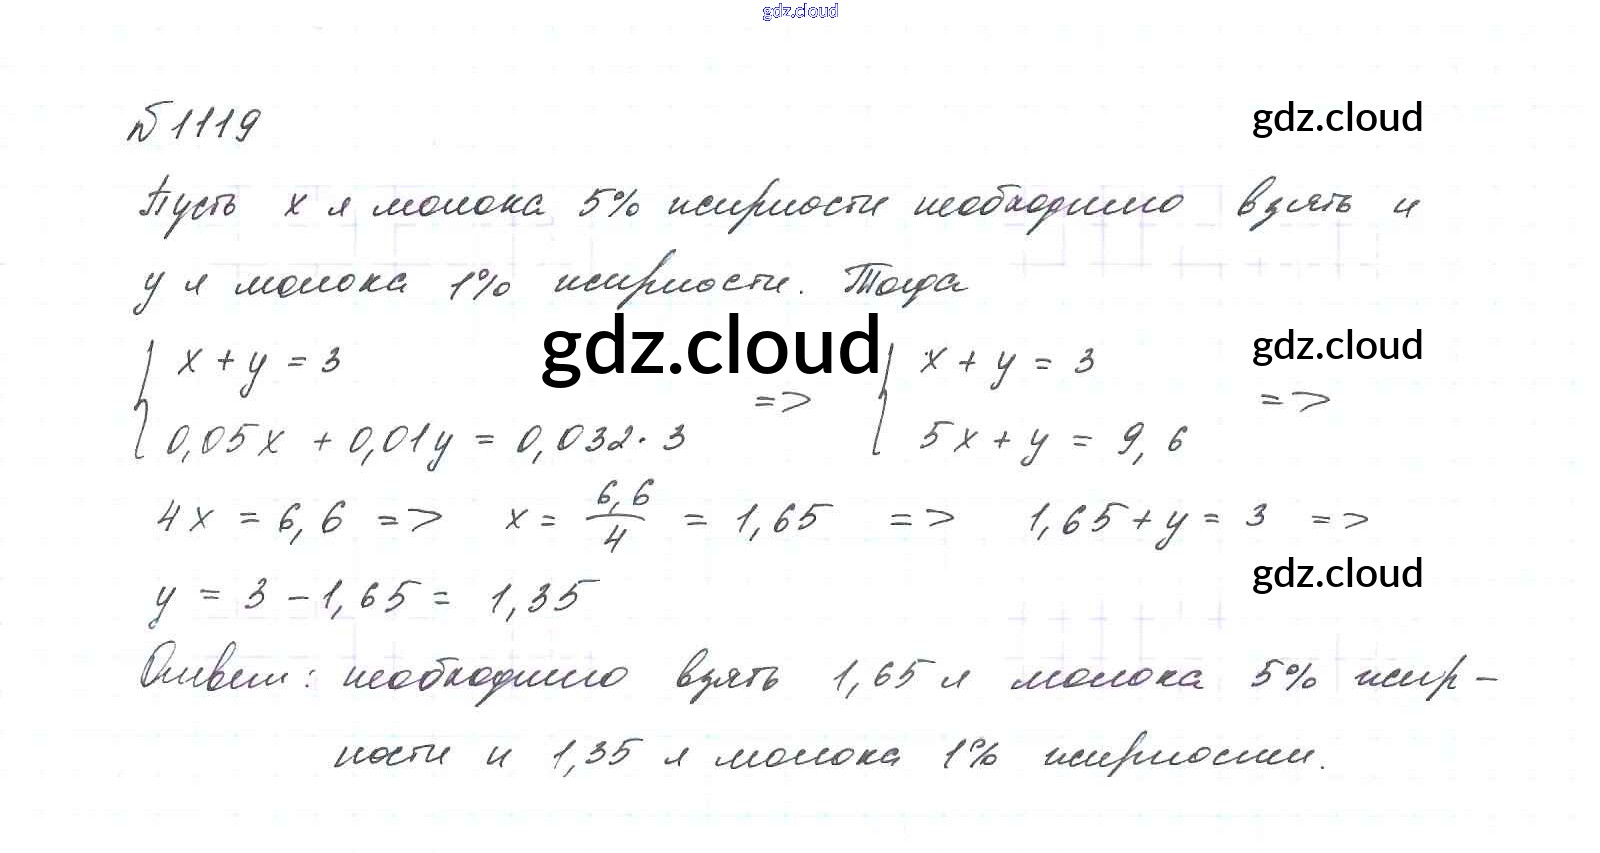 gdz.cloud
№1119
gdz.cloud
Пусть x л молока 5% жирности необходимо взять и
y л молока 1% жирности. Тогда
gdz.cloud
gdz.cloud
x + y = 3
x + y = 3
=>
=>
0,05x + 0,01y = 0,032·3
5x + y = 9,6
4x = 6,6 => x = 6,6/4 = 1,65 => 1,65 + y = 3 =>
gdz.cloud
y = 3 - 1,65 = 1,35
Ответ: необходимо взять 1,65 л молока 5% жир-
ности и 1,35 л молока 1% жирности.